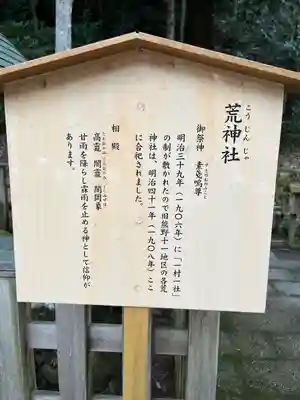 こうじんじゃ
荒神社
御祭神　素戔嗚尊
明治三十九年(一九〇六年)に「一村一社」
の制が敷かれたので旧熊野十一地区の各荒
神社は、明治四十一年(一九〇八年)ここ
に合祀されました。
相殿
高龗　闇龗　闇罔象
甘雨を降らし霖雨を止める神として信仰が
あります。